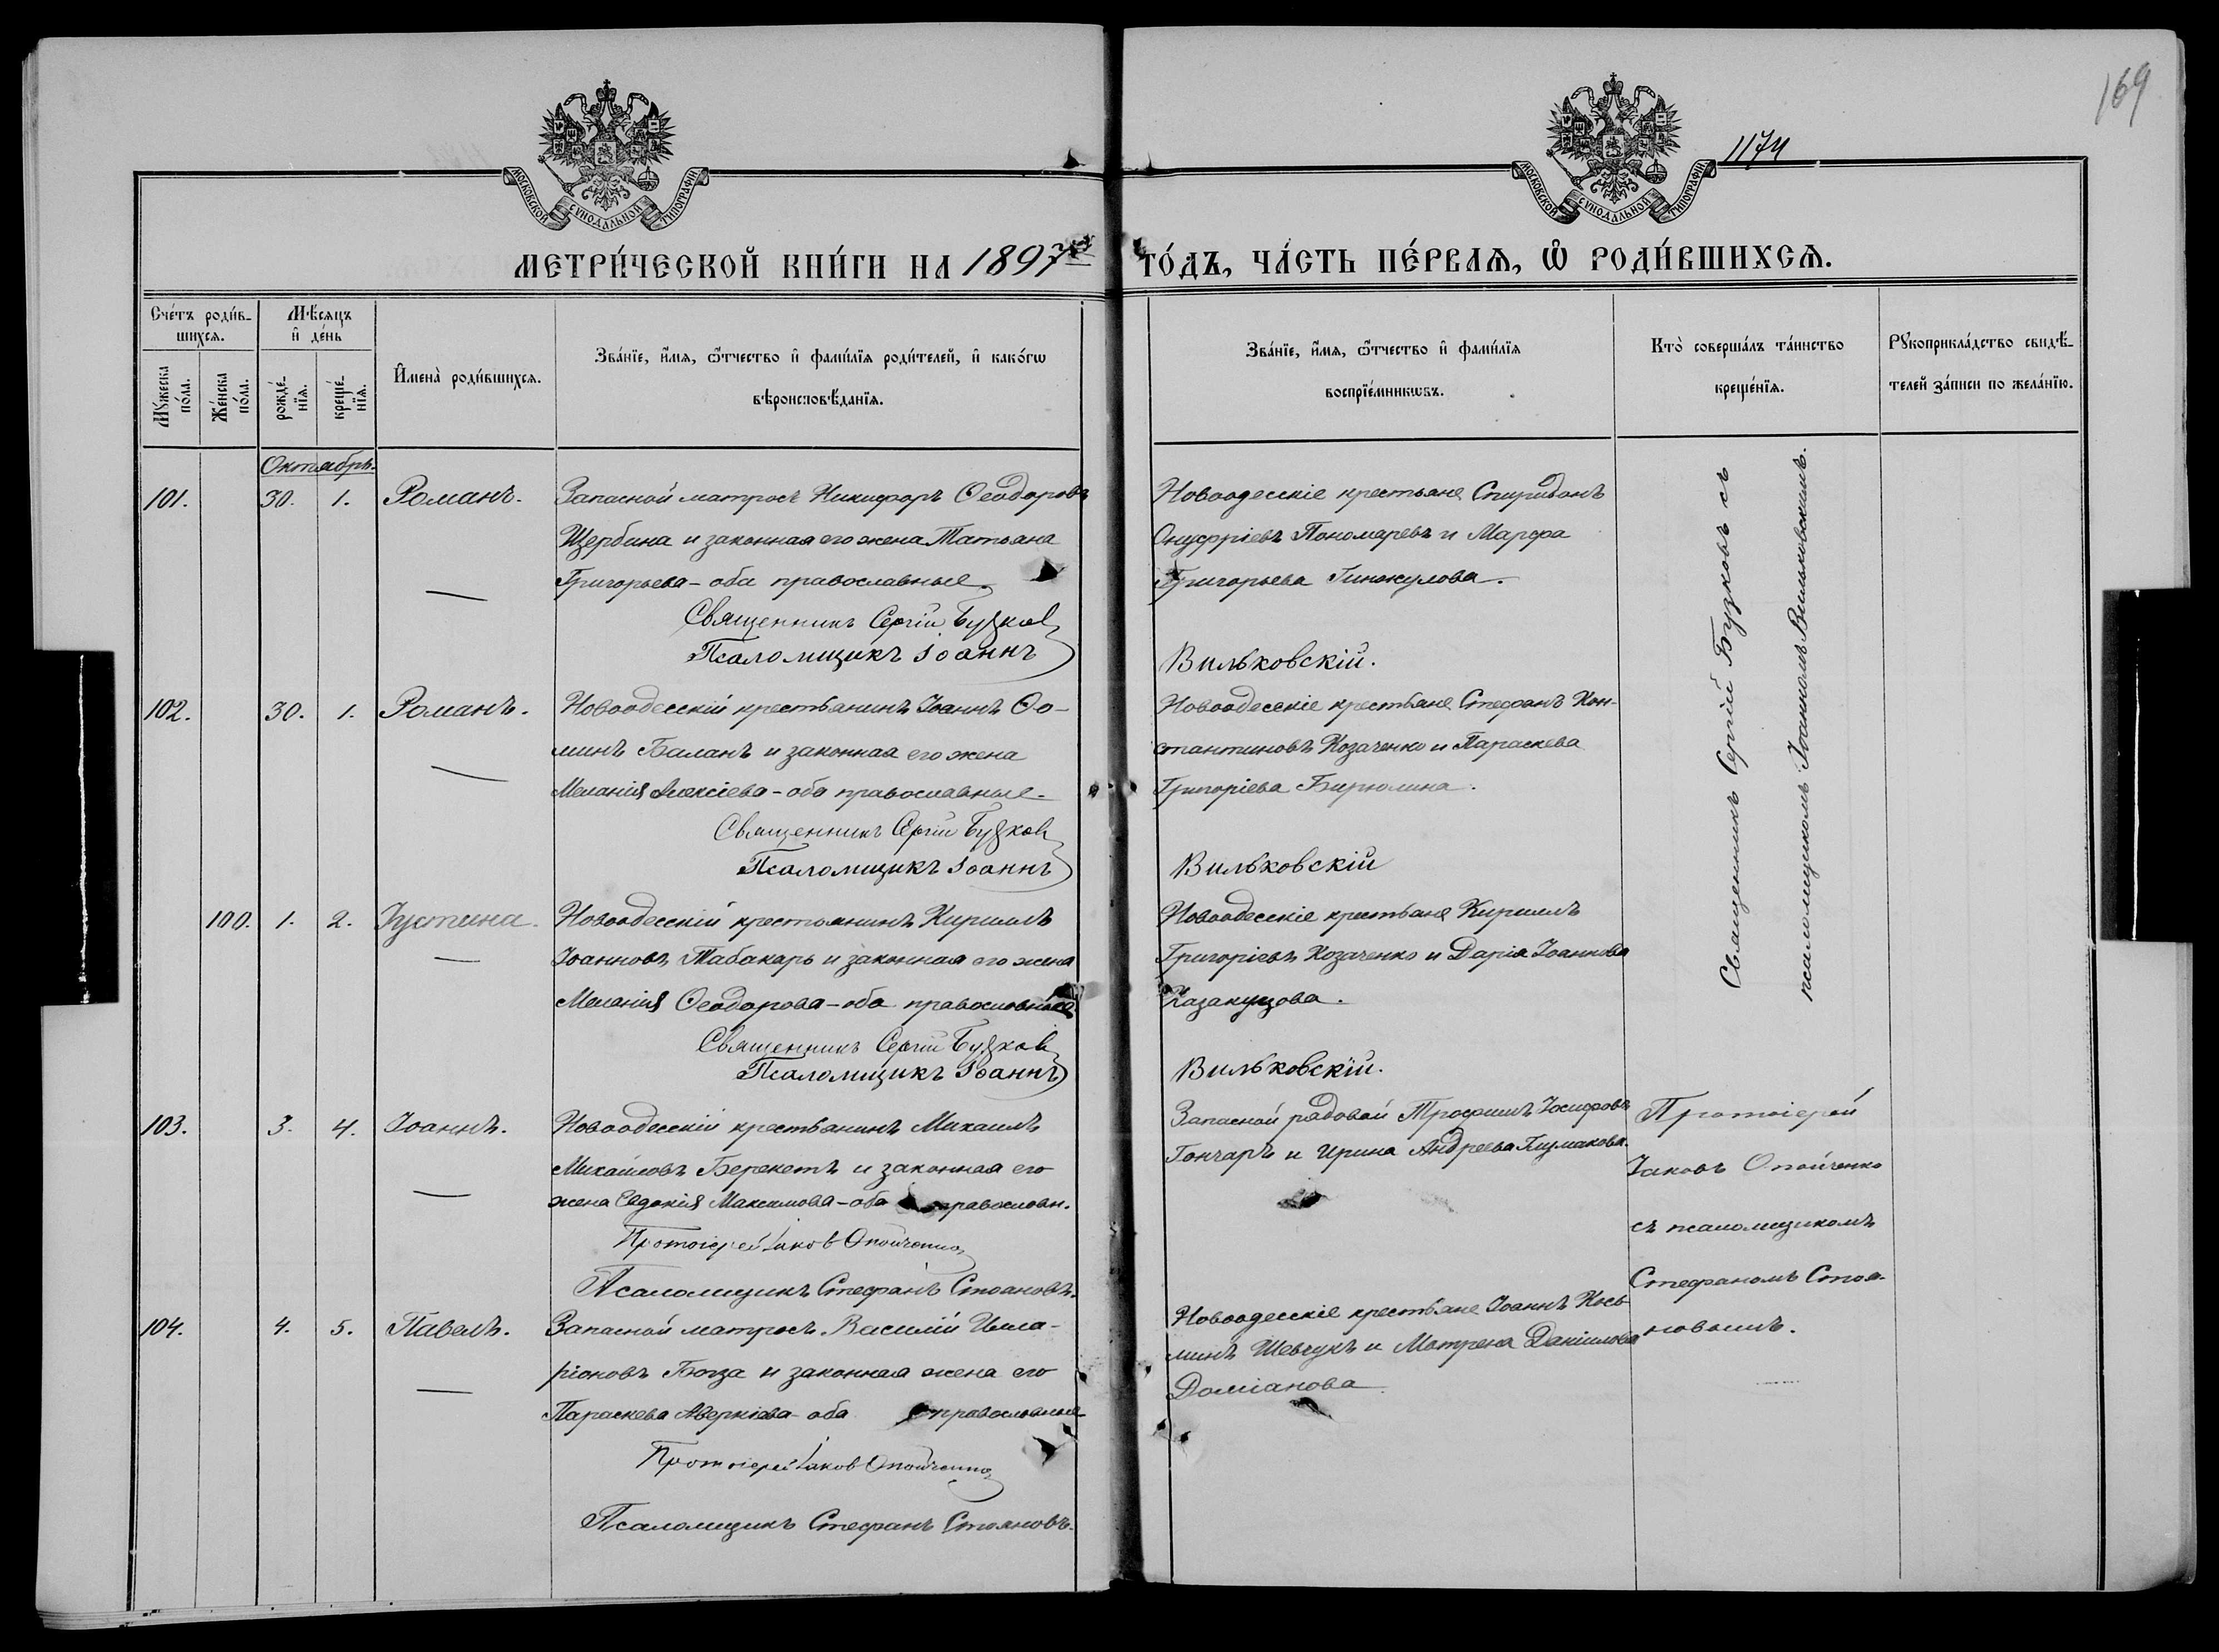 169
1174
МОСКОВСКОЙ СѴНОДАЛЬНОЙ ТИПОГРАФІИ
МОСКОВСКОЙ СѴНОДАЛЬНОЙ ТИПОГРАФІИ
МЕТРИ́ЧЕСКОЙ КНИ́ГИ НА 1897й ГО́ДЪ, ЧА́СТЬ ПЕ́РВАѦ, Ѽ РОДИ́ВШИХСѦ.
Сче́тъ роди́в-
шихсѧ.
Мѣ́сѧцъ
и҆ де́нь
Мꙋ́жеска
по́ла.
Же́нска
по́ла.
рожде́-
нїѧ.
креще́-
нїѧ.
И҆мена̀ роди́вшихсѧ.
Зва́нїе, и҆́мѧ, ѻ҆́тчество и҆ фами́лїѧ роди́телей, и҆ како́гѡ
вѣроисповѣ́данїѧ.
Зва́нїе, и҆́мѧ, ѻ҆́тчество и҆ фами́лїѧ
воспрїе́мникѡвъ.
Кто̀ соверша́лъ та́инство
креще́нїѧ.
Рꙋкоприкла́дство свидѣ́-
телей за́писи по жела́нїю.
Октябрь.
101. 30. 1. Романъ.
Запасной матросъ Никифоръ Ѳеодоровъ
Щербина и законная его жена Татьяна
Григорьева - оба православные
Священникъ Сергій Бузков
Псаломщикъ Іоаннъ
Новоодесскіе крестьяне Спиридонъ
Онуфріевъ Пономаревъ и Марфа
Григорьева Гинжулова.
Вильковскій.
Священникъ Сергій Бузковъ съ
псаломщикомъ Іоанномъ Вильковскимъ.
102. 30. 1. Романъ.
Новоодесскій крестьянинъ Іоаннъ Ѳо-
минъ Баланъ и законная его жена
Меланія Алексіева - оба православные -
Священникъ Сергій Бузков
Псаломщикъ Іоаннъ
Новоодесскіе крестьяне Стефанъ Кон-
стантиновъ Козаченко и Параскева
Григоріева Бирюлина.
Вильковскій
100. 1. 2. Іустина.
Новоодесскій крестьянинъ Кириллъ
Іоанновъ Табакарь и законная его жена
Меланія Ѳеодорова - оба православные
Священникъ Сергій Бузков
Псаломщикъ Іоаннъ
Новоодесскіе крестьяне Кириллъ
Григоріевъ Козаченко и Дарія Іоаннова
Казакуцова.
Вильковскій.
103. 3. 4. Іоаннъ.
Новоодесскій крестьянинъ Михаилъ
Михайловъ Берекетъ и законная его
жена Евдокія Максимова - оба православн.
Протоіерей Іаков Опойченко
Псаломщикъ Стефанъ Стояновъ.
Запасной рядовой Трофимъ Іосифовъ
Гончаръ и Ирина Андреева
Протоіерей
Іаковъ Опойченко
съ псаломщикомъ
Стефаномъ Стоя-
новымъ.
104. 4. 5. Павелъ.
Запасной матросъ Василій Ила-
ріоновъ Богза и законная жена его
Параскева Аверкіева - оба православные
Протоіерей Іаков Опойченко
Псаломщикъ Стефанъ Стояновъ.
Новоодесскіе крестьяне Іоаннъ Кось-
минъ Шевчукъ и Матрена Даніилова
Доміанова